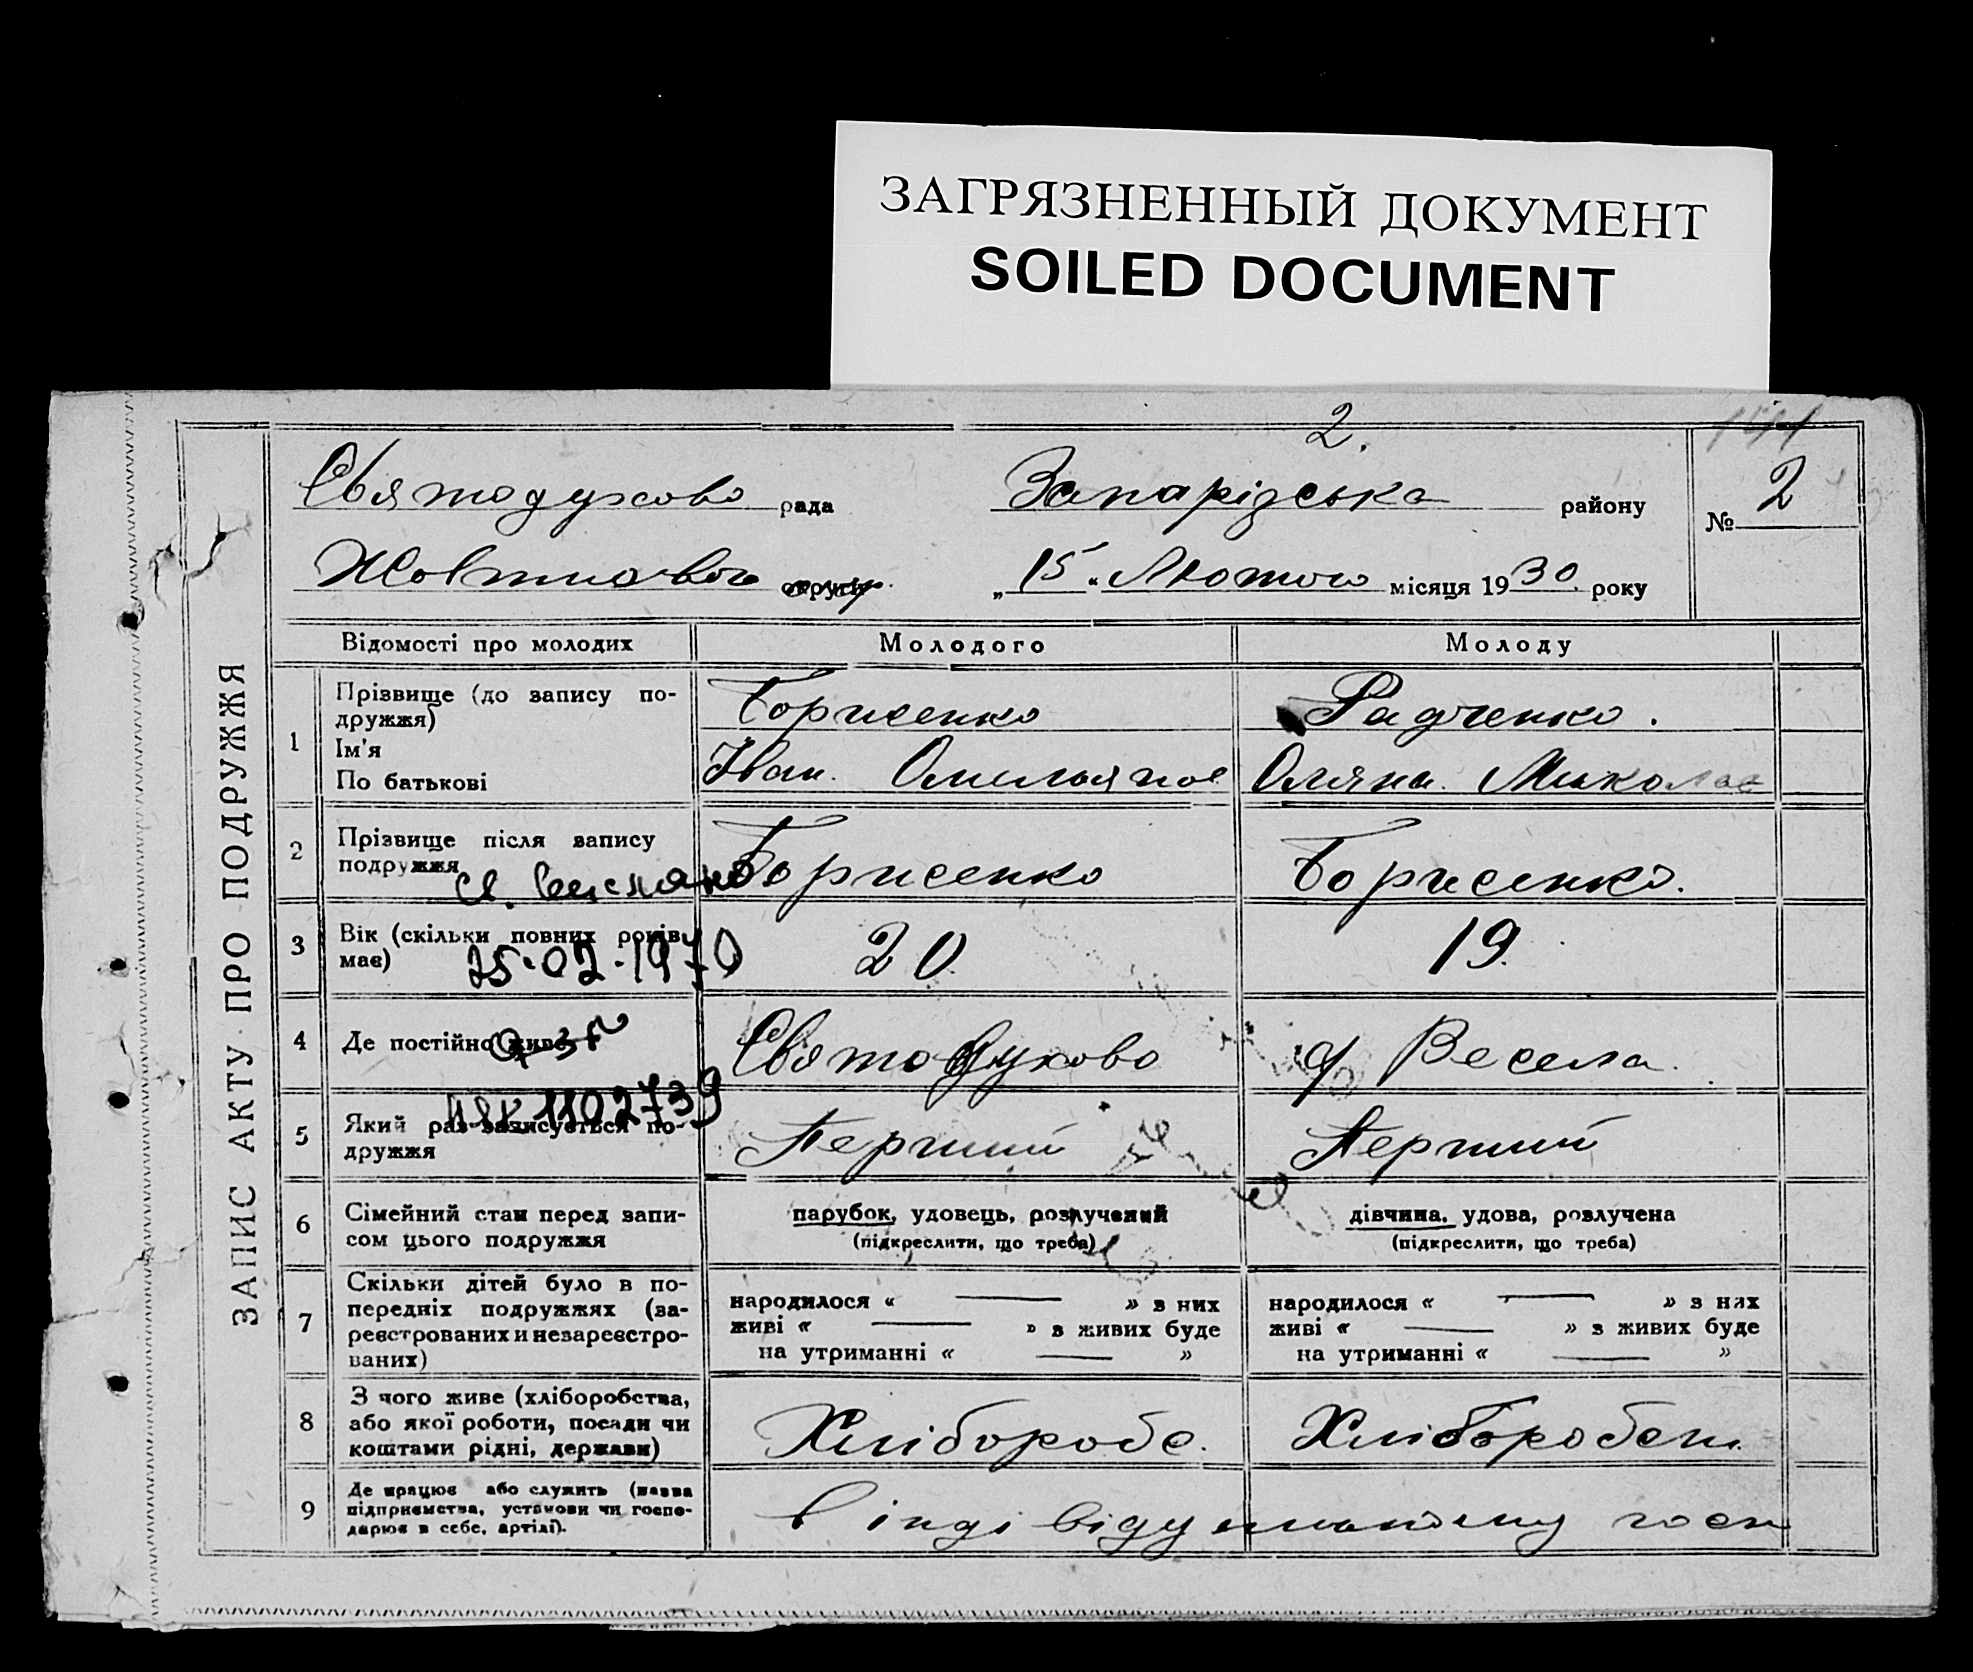 ЗАГРЯЗНЕННЫЙ ДОКУМЕНТ
SOILED DOCUMENT
2.
Святодухово рада Запарізська району
№ 2
Жовтнового округи „15“ Лютого місяця 1930 року
ЗАПИС АКТУ ПРО ПОДРУЖЖЯ
Відомості про молодих Молодого Молоду
1 Прізвище (до запису по-
дружжя) Борисенко Радченко.
Ім'я
По батькові Іван. Омельянов Оляна. Миколає
2 Прізвище після запису
подружжя Борисенко Борисенко.
3 Вік (скільки повних років
має) 20 19.
25.02.1970
4 Де постійно живе Святодухово Весела.
1102739
5 Який раз записується по-
дружжя Перший Перший
6 Сімейний стан перед запи-
сом цього подружжя
парубок, удовець, розлучений
(підкреслити, що треба)
дівчина, удова, розлучена
(підкреслити, що треба)
7 Скільки дітей було в по-
передніх подружжях (за-
реєстрованих и незареєстро-
ваних)
народилося « — » з них
живі « — » з живих буде
на утриманні « — »
народилося « — » з них
живі « — » з живих буде
на утриманні « — »
8 З чого живе (хліборобства,
або якої роботи, посади чи
коштами рідні, держави)
Хлібороб Хлібороб
9 Де працює або служить (назва
підприємства, установи чи госпо-
дарює в себе, артілі).
В індівідуальному госп